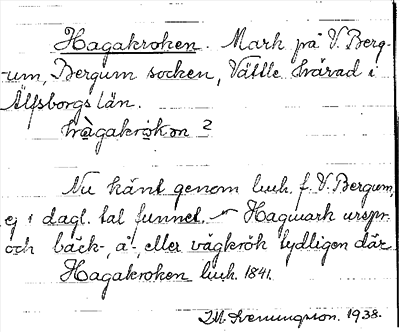 Hagakroken. Mark på V. Berg-
um, Bergum socken, Vättle härad i
Älfsborgs län.
hàgakrok ən 2
Nu känt genom luh. f. V. Bergum,
ej i dagl. tal funnet. Hagmark urspr.
och bäck-, å-, eller vägkrök tydligen där.
Hagakroken luh. 1841.
1938.